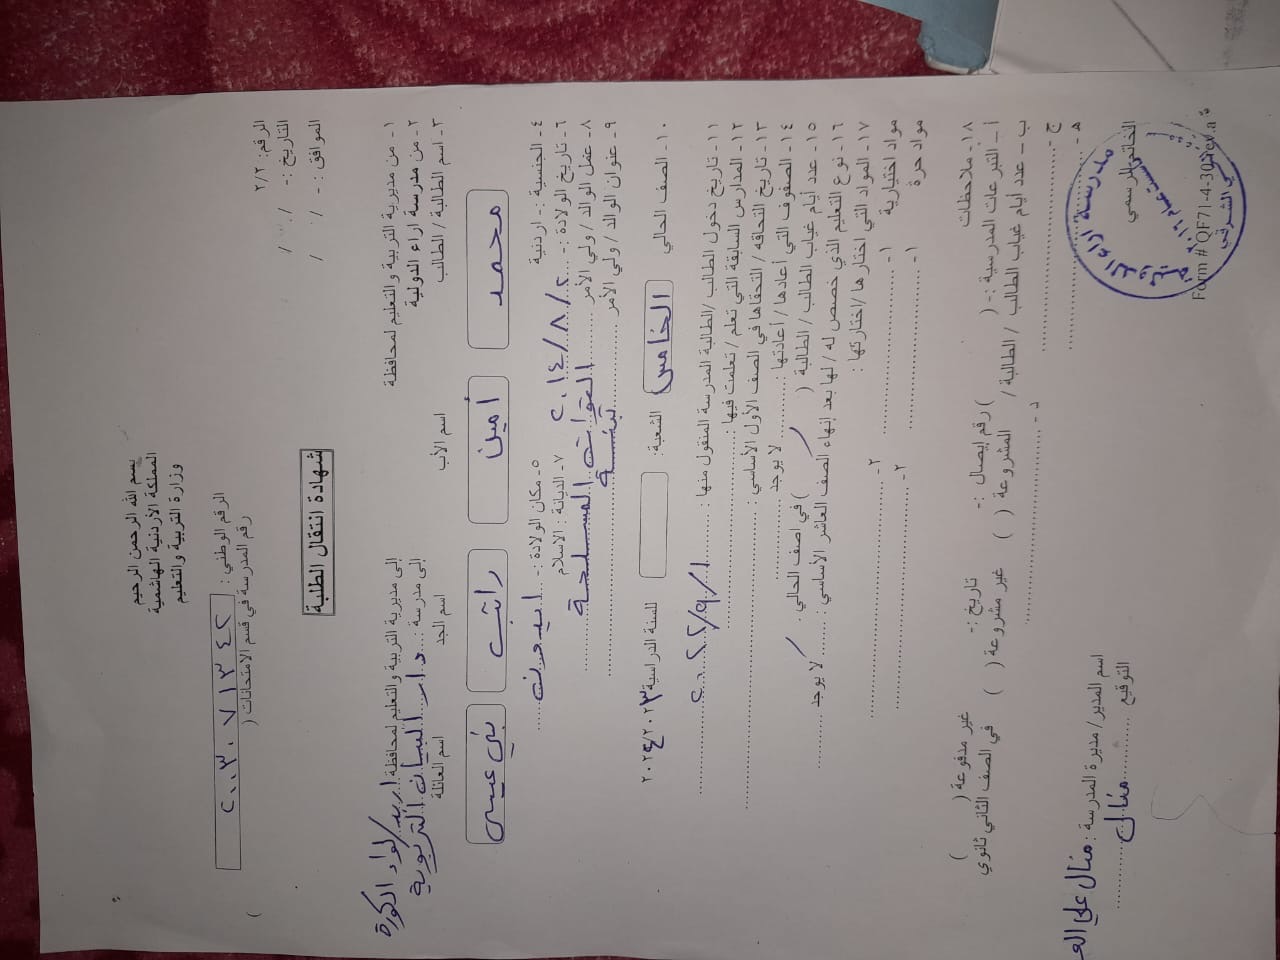 بسم الله الرحمن الرحيم
المملكة الأردنية الهاشمية
وزارة التربية والتعليم
الرقم: ٢/٢
التاريخ :- / /
الموافق :- / /
الرقم الوطني : ٢٠٣٠٧١٣٤٢
رقم المدرسة في قسم الامتحانات ( )
شهادة انتقال الطلبة
١- من مديرية التربية و التعليم لمحافظة
إلى مديرية التربية والتعليم لمحافظة : اربد/ لواء الكورة
٢- من مدرسة اراء الدولية
إلى مدرسة : دار البيان التربوية
٣- اسم الطالبة / الطالب
اسم الأب
اسم الجد
اسم العائلة
محمد
أمين
راتب
بني عيسى
٤- الجنسية :- اردنية
٥- مكان الولادة :- ايدون
٦- تاريخ الولادة :- ٢٠١٤/٨/٢
٧- الديانة : الاسلام
٨- عمل الوالد / ولي الأمر القوات المسلحة
٩- عنوان الوالد / ولي الأمر
١٠- الصف الحالي الخامس
الشعبة:
للسنة الدراسية ٢٠٢٣ / ٢٠٢٤
١١- تاريخ دخول الطالب /الطالبة المدرسة المنقول منها : ٢٠٢٢/٩/١
١٢- المدارس السابقة التي تعلم / تعلمت فيها :
١٣- تاريخ التحاقه / التحقاها في الصف الأول الأساسي :
١٤- الصفوف التي أعادها / أعادتها : لا يوجد
١٥- عدد أيام غياب الطالب / الطالبة ( ) في اصف الحالي .
١٦- نوع التعليم الذي خصص له / لها بعد إنهاء الصف العاشر الأساسي : لا يوجد
١٧- المواد التي اختارها /اختارتها :
مواد اختيارية ١- ٢-
مواد حرة ١- ٢-
١٨- ملاحظات
أ – التبرعات المدرسية :- ( ) رقم إيصال :- تاريخ :- غير مدفوعة ( )
ب – عدد أيام غياب الطالب / الطالبة / المشروعة ( ) غير مشروعة ( ) في الصف الثاني ثانوي
ج - د -
هـ -
الخاتم الرسمي
اسم المدير/ مديرة المدرسة : منال علي
التوقيع منال
Form # QF71-4-30 rev.a